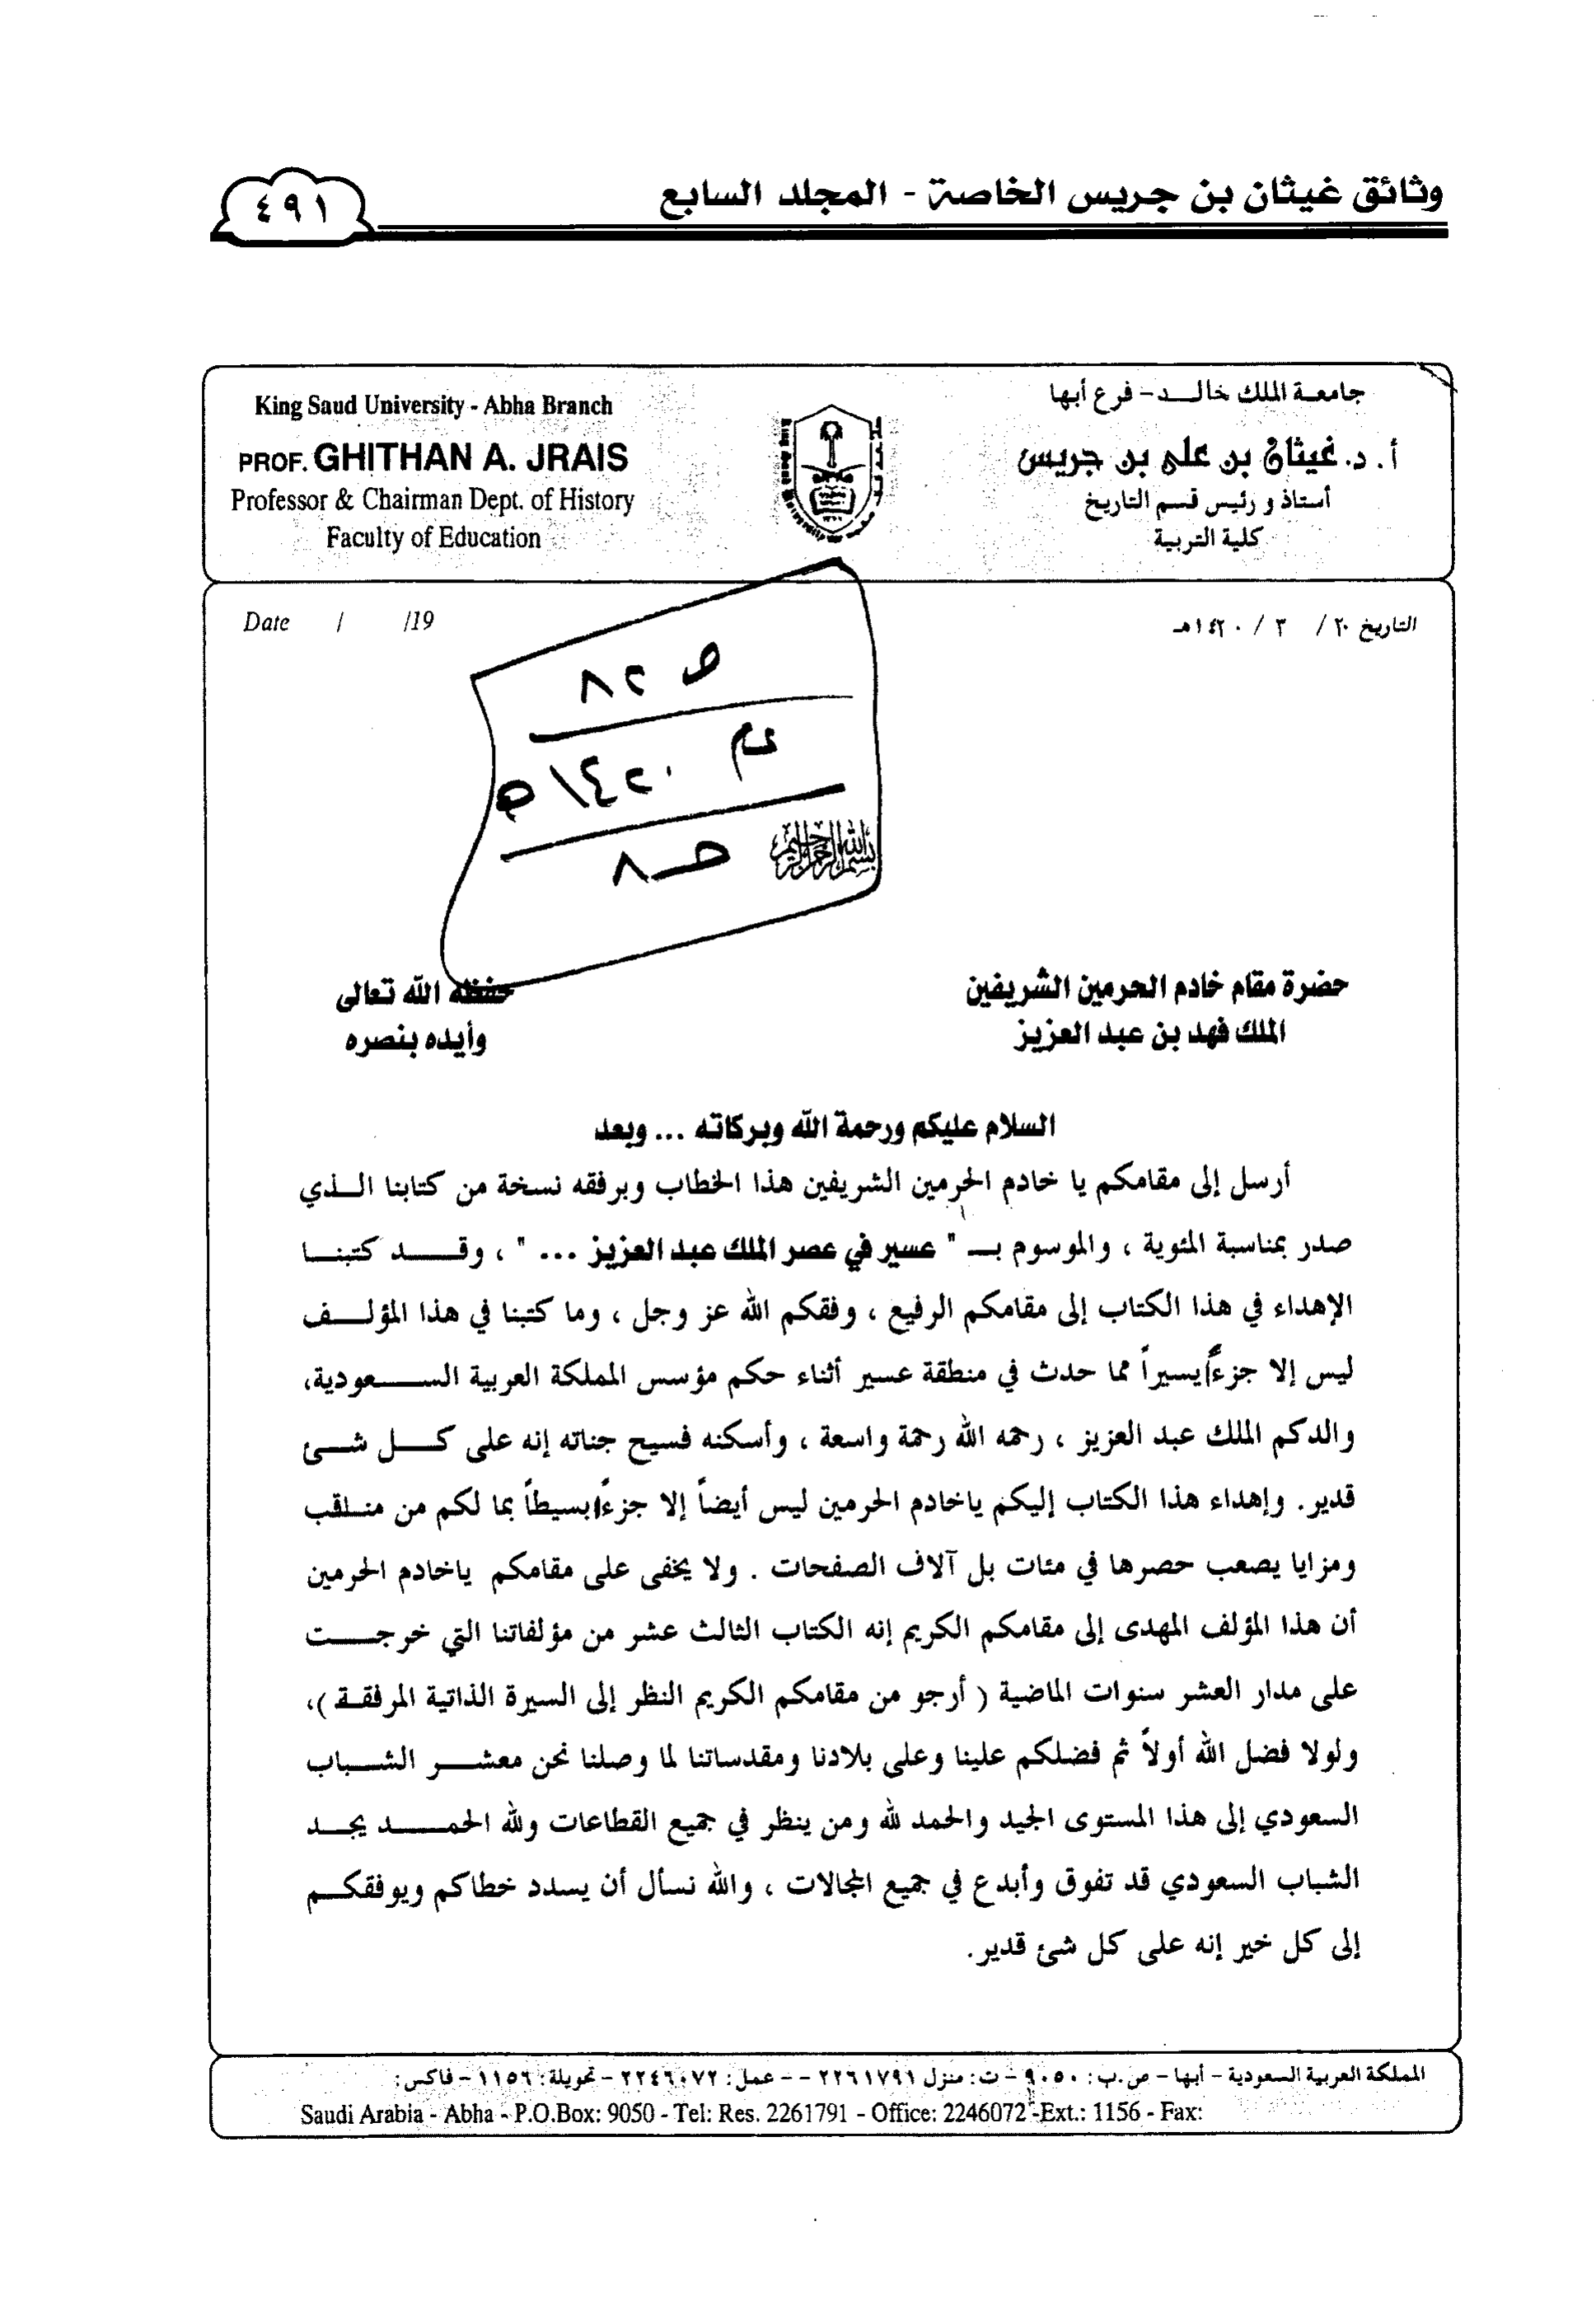 وثائق غيثان بن جريس الخاصة - المجلد السابع
٤٩١
جامعة الملك خالد - فرع أبها
أ. د. غيثان بن على بن جريس
أستاذ و رئيس قسم التاريخ
كلية التربية
King Saud University - Abha Branch
PROF. GHITHAN A. JRAIS
Professor & Chairman Dept. of History
Faculty of Education
التاريخ ٢٠ / ٣ / ١٤٢٠هـ
Date / /19
ص ٢٨
عام ١٤٢٠هـ
حـ ٨
بسم الله الرحمن الرحيم
حضرة مقام خادم الحرمين الشريفين حفظه الله تعالى
الملك فهد بن عبد العزيز وأيده بنصره
السلام عليكم ورحمة الله وبركاته ... وبعد
أرسل إلى مقامكم يا خادم الحرمين الشريفين هذا الخطاب وبرفقه نسخة من كتابنا الذي
صدر بمناسبة المئوية ، والموسوم بـ " عسير في عصر الملك عبد العزيز ... " ، وقد كتبنا
الإهداء في هذا الكتاب إلى مقامكم الرفيع ، وفقكم الله عز وجل ، وما كتبنا في هذا المؤلف
ليس إلا جزءاً يسيراً مما حدث في منطقة عسير أثناء حكم مؤسس المملكة العربية السعودية،
والدكم الملك عبد العزيز ، رحمه الله رحمة واسعة ، وأسكنه فسيح جناته إنه على كل شئ
قدير. وإهداء هذا الكتاب إليكم ياخادم الحرمين ليس أيضاً إلا جزءاً بسيطاً بما لكم من مناقب
ومزايا يصعب حصرها في مئات بل آلاف الصفحات . ولا يخفى على مقامكم ياخادم الحرمين
أن هذا المؤلف المهدى إلى مقامكم الكريم إنه الكتاب الثالث عشر من مؤلفاتنا التي خرجت
على مدار العشر سنوات الماضية ( أرجو من مقامكم الكريم النظر إلى السيرة الذاتية المرفقة )،
ولولا فضل الله أولاً ثم فضلكم علينا وعلى بلادنا ومقدساتنا لما وصلنا نحن معشر الشباب
السعودي إلى هذا المستوى الجيد والحمد لله ومن ينظر في جميع القطاعات ولله الحمد يجد
الشباب السعودي قد تفوق وأبدع في جميع المجالات ، والله نسأل أن يسدد خطاكم ويوفقكم
إلى كل خير إنه على كل شئ قدير.
المملكة العربية السعودية - أبها - ص.ب: ٩٠٥٠ - ت: منزل ٢٢٦١٧٩١ - - عمل: ٢٢٤٦٠٧٢ - تحويلة: ١١٥٦ - فاكس:
Saudi Arabia - Abha - P.O.Box: 9050 - Tel: Res. 2261791 - Office: 2246072 -Ext.: 1156 - Fax: